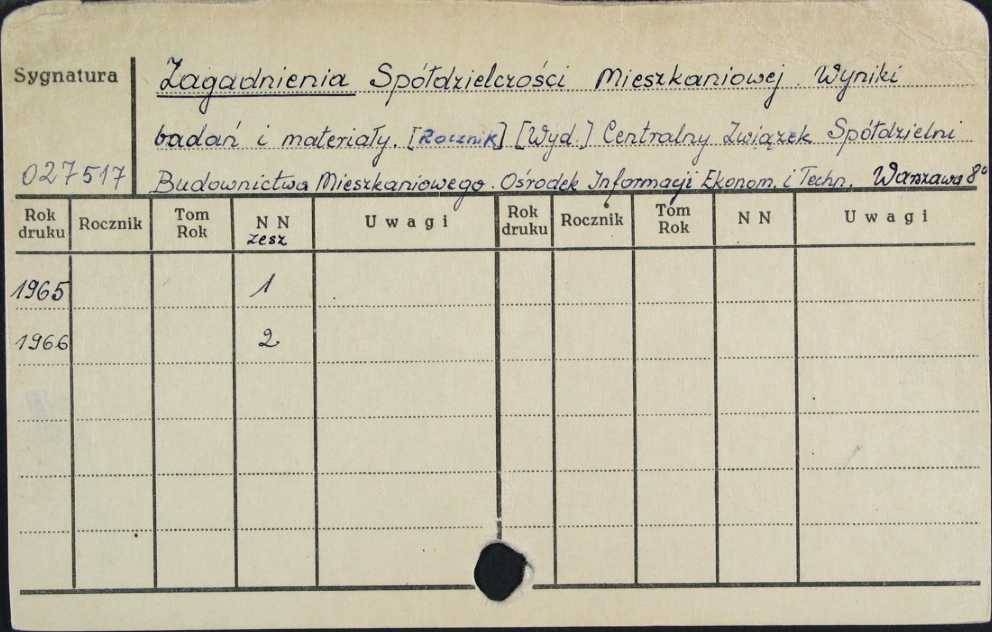 Sygnatura
Zagadnienia Spółdzielczości Mieszkaniowej Wyniki
badań i materiały. [Rocznik] [Wyd.] Centralny Związek Spółdzielni
027517
Budownictwa Mieszkaniowego. Ośrodek Informacji Ekonom. i Techn. Warszawa 8°
Rok druku Rocznik Tom Rok NN zesz Uwagi Rok druku Rocznik Tom Rok NN Uwagi
1965 1
1966 2